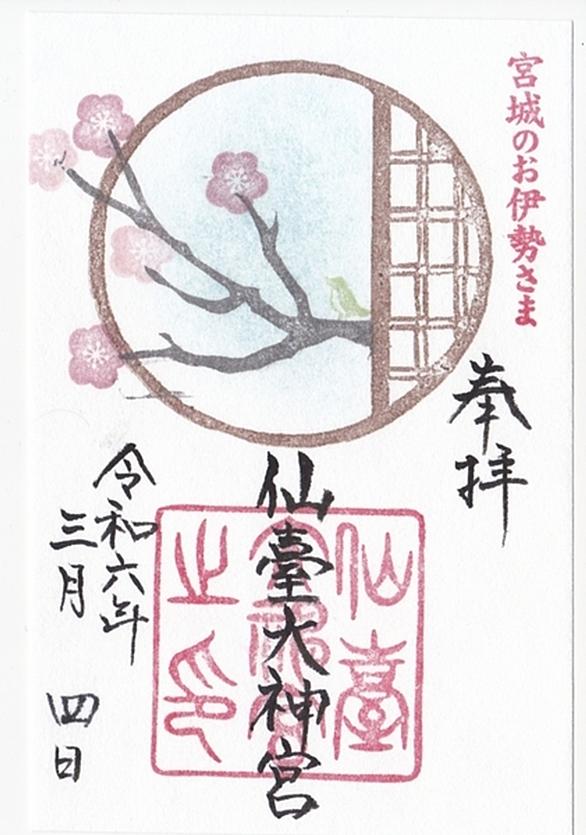 宮城のお伊勢さま
奉拝
仙臺大神宮
仙臺
大神宮
之印
令和六年
三月 四日